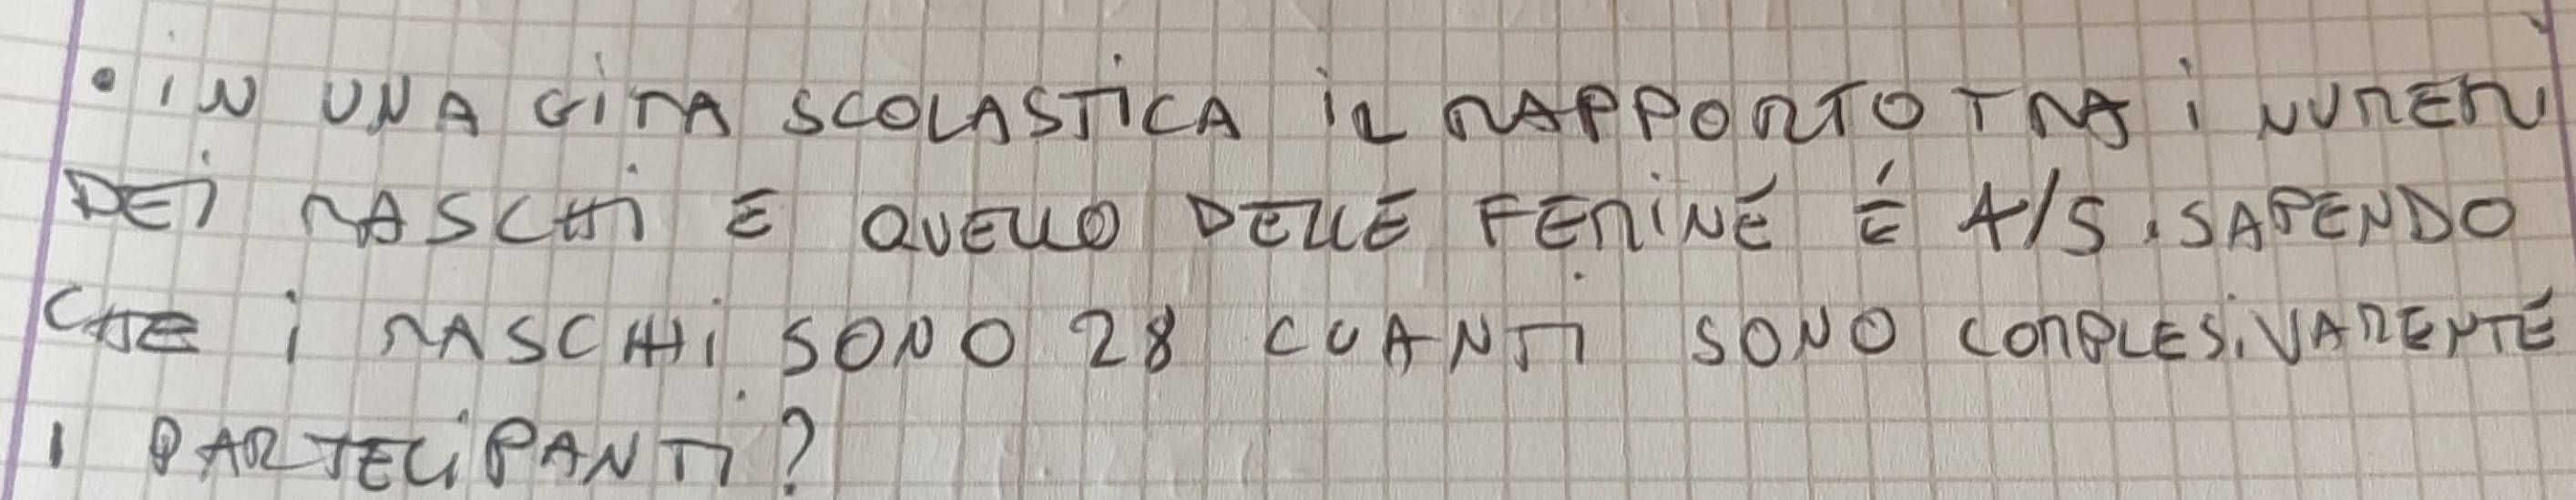 • IN UNA GITA SCOLASTICA IL RAPPORTO TRA I NUMERI
DEI MASCHI E QUELLO DELLE FEMINE È 4/5. SAPENDO
CHE I MASCHI SONO 28 CUANTI SONO COMPLESIVAMENTE
I PARTECIPANTI?